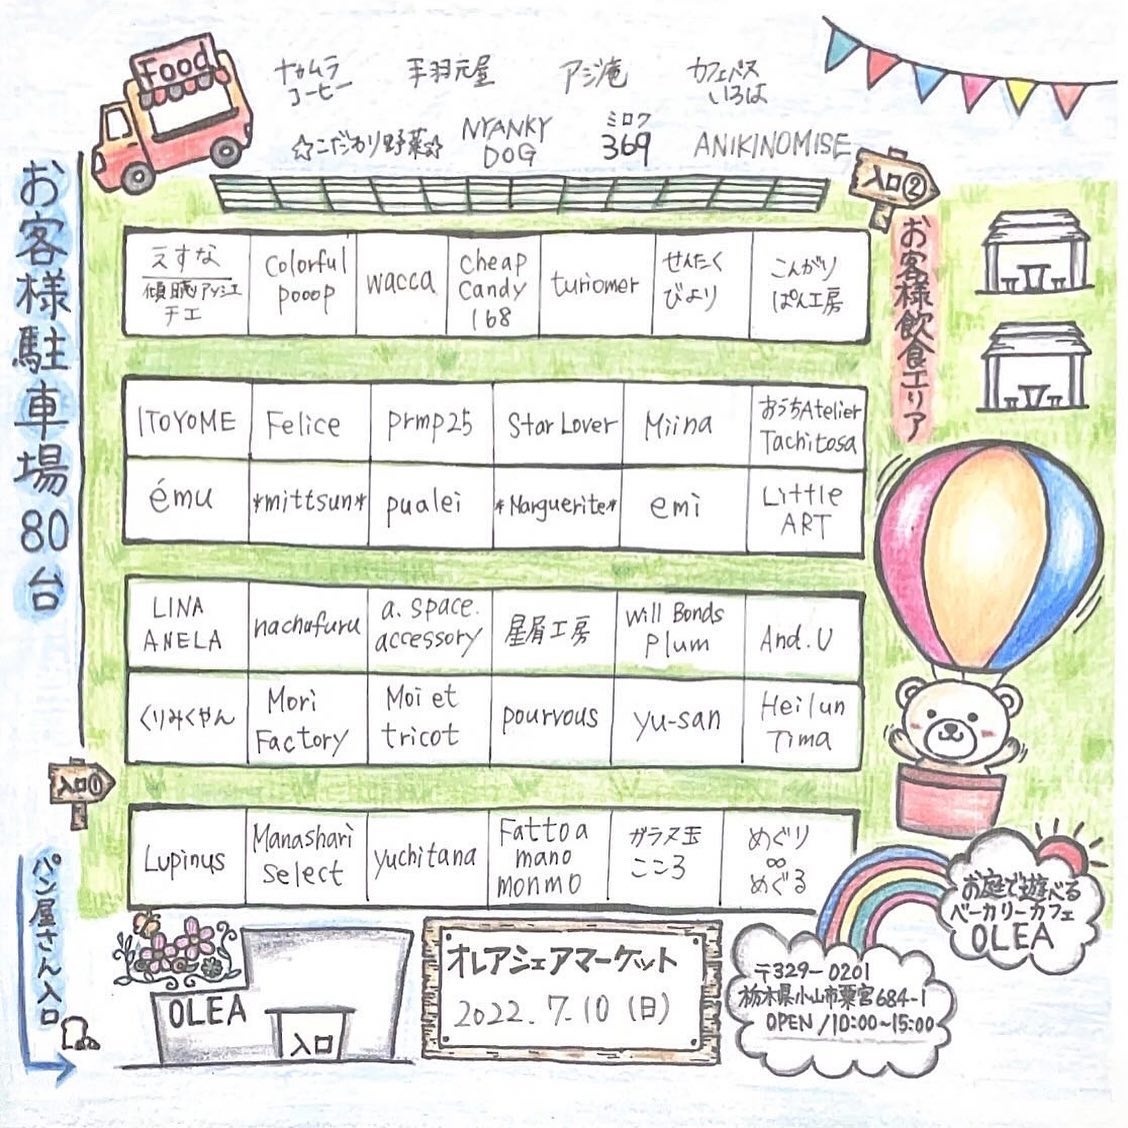 Food
ナカムラ
コーヒー
手羽元屋
アジ庵
カフェバス
いろは
☆こだわり野菜☆
NYANKY
DOG
ミロク
369
ANIKINOMISE
入口②
お客様駐車場80台
お客様飲食エリア
えすな
傾聴アッシェ
チエ
Colorful
pooop
wacca
cheap
candy
168
turiomer
せんたく
びより
こんがり
ぱん工房
ITOYOME
Felice
prmp25
Star Lover
Miina
おうちAtelier
Tachitosa
ému
*mittsun*
pualei
*Marguerite*
emi
Little
ART
LINA
ANELA
nachafuru
a. space.
accessory
星屑工房
will Bonds
Plum
And. U
くりみくやん
Mori
Factory
Moi et
tricot
pourvous
yu-san
Heilun
Tima
入口①
Lupinus
Manashari
Select
yuchitana
Fatto a
mano
monmo
ガラス玉
こころ
めぐり
∞
めぐる
パン屋さん入口
OLEA
入口
オレアシェアマーケット
2022. 7. 10 (日)
お庭で遊べる
ベーカリーカフェ
OLEA
〒329-0201
栃木県小山市粟宮684-1
OPEN/10:00~15:00